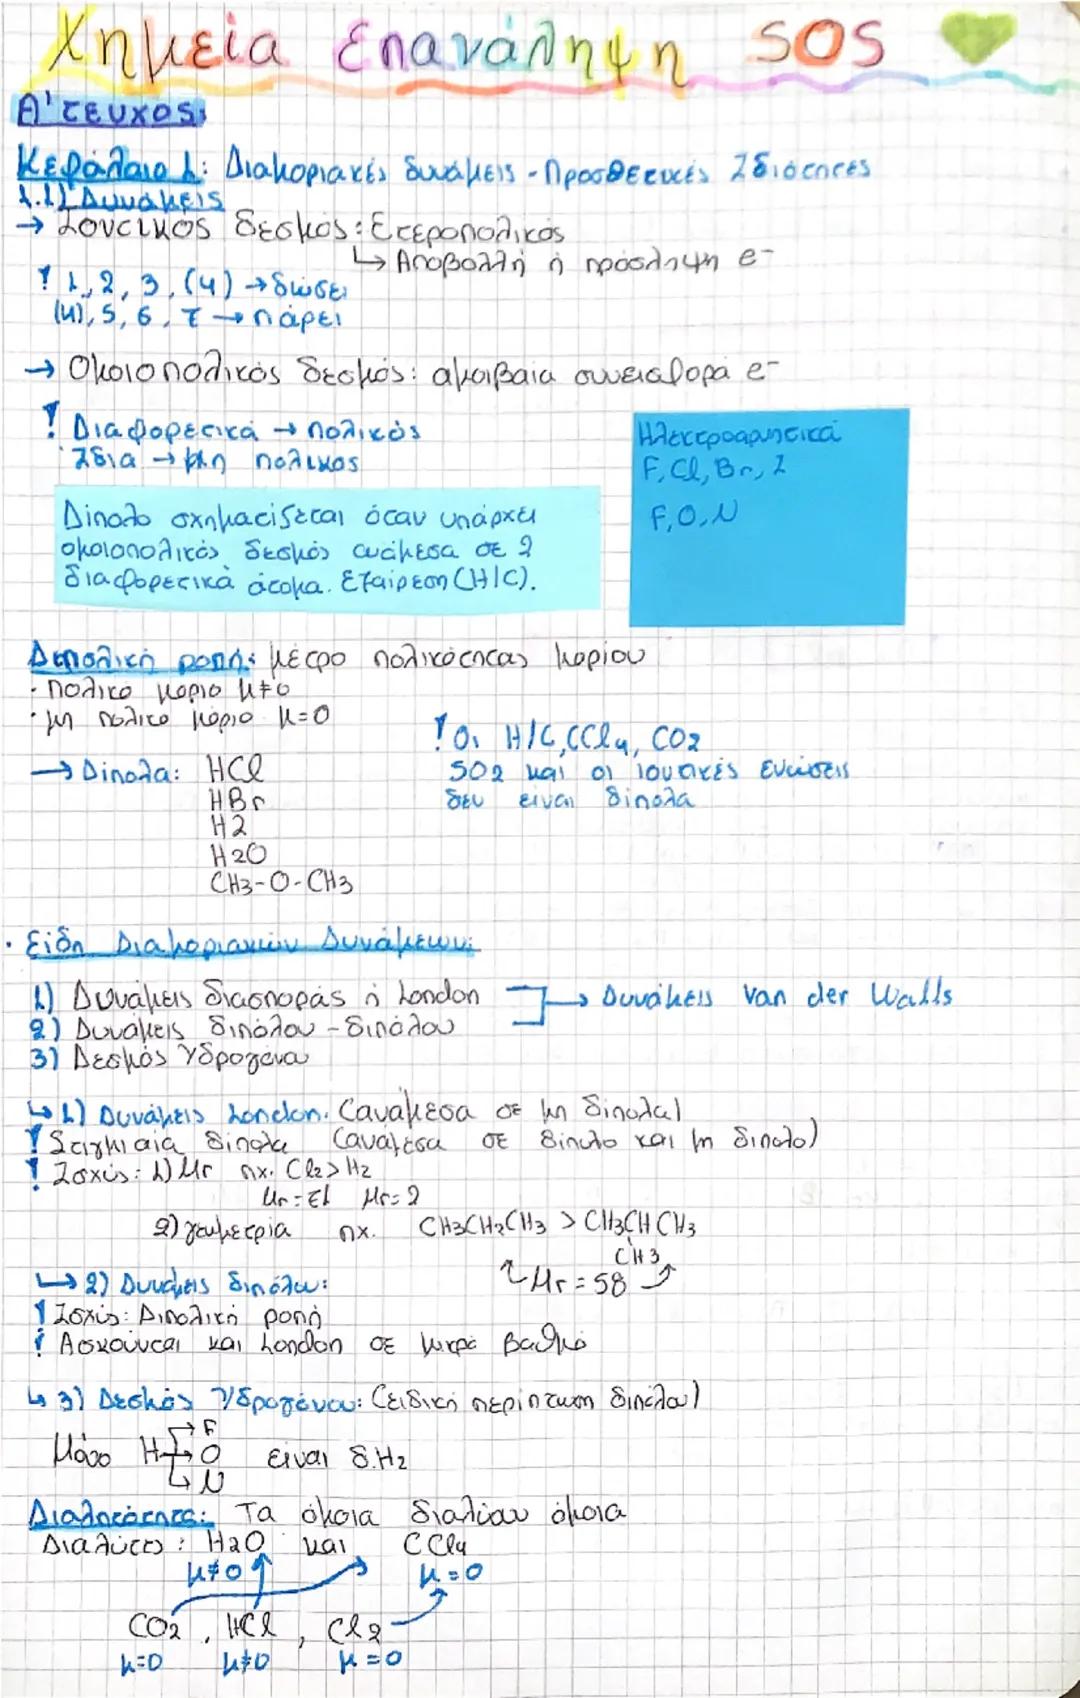 Χημεία Επανάληψη SOS
Α' τευχος:
Κεφάλαιο 1: Διαμοριακές δυνάμεις - Προσθετικές Ιδιότητες
1.1) Δυνάμεις
→ Ιοντικός δεσμός: Ετεροπολικός
↳ Αποβολλή ή πρόσληψη e-
! 1, 2, 3, (4) → δώσει
(4), 5, 6, 7 → πάρει
→ Ομοιοπολικός δεσμός: αμοιβαία συνεισφορά e-
! Διαφορετικά → πολικός
Ίδια → μη πολικος
Ηλεκτροαρνητικά
F, Cl, Br, I
F, O, N
Δίπολο σχηματίζεται όταν υπάρχει
ομοιοπολικός δεσμός ανάμεσα σε 2
διαφορετικά άτομα. Εξαίρεση (H/C).
Διπολική ροπή: μέτρο πολικότητας μορίου
· πολικο μοριο μ≠0
· μη πολικο μόριο μ=0
! Οι H/C, CCl4, CO2
SO2 και οι ιοντικές ενώσεις
δεν είναι δίπολα
→ Δίπολα: HCl
HBr
H2
H2O
CH3-O-CH3
· Είδη Διαμοριακών Δυνάμεων:
1) Δυνάμεις διασποράς ή London → Δυνάμεις Van der Walls
2) Δυνάμεις διπόλου - διπόλου
3) Δεσμός Υδρογόνου
↳ 1) Δυνάμεις London. (ανάμεσα σε μη δίπολα)
! Στιγμιαία δίπολα (ανάμεσα σε δίπολο και μη δίπολο)
! Ισχύς: 1) Mr πχ. Cl2 > H2
Mr=71 Mr=2
2) γεωμετρία πχ. CH3CH2CH3 > CH3CHCH3
CH3
Mr = 58
↳ 2) Δυνάμεις διπόλου:
! Ισχύς: Διπολική ροπή
! Ασκούνται και London σε μικρό βαθμό
↳ 3) Δεσμός Υδρογόνου: (ειδική περίπτωση διπόλου)
F
Μόνο H → O είναι δ.H2
N
Διαλυτότητα: Τα όμοια διαλύουν όμοια
Διαλύτες: H2O και CCl4
μ≠0 μ=0
CO2, HCl, Cl2
μ=0 μ≠0 μ=0